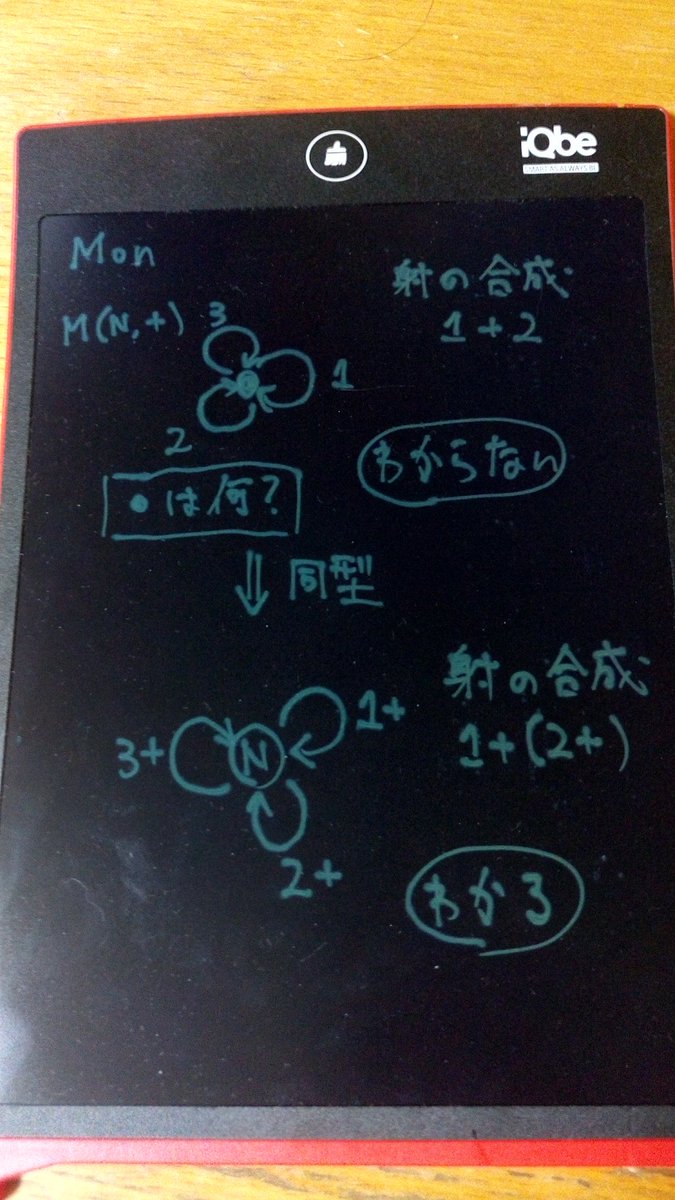 iQbe
SMART AS ALWAYS BE
Mon
M(N,+)
3
1
2
射の合成
1+2
わからない
●は何?
⇓ 同型
射の合成
1+(2+)
3+
N
1+
2+
わかる